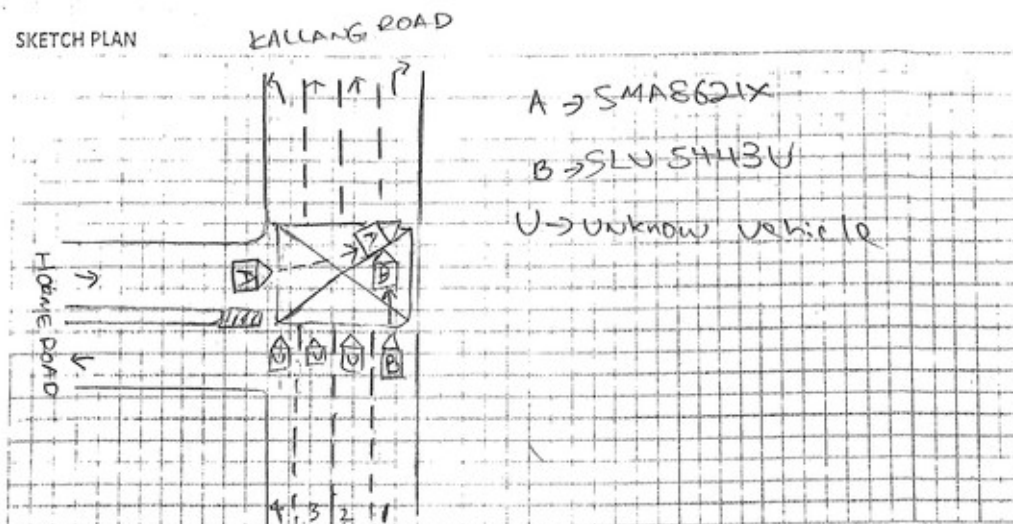 SKETCH PLAN
KALLANG ROAD
A → SMA8621X
B → SLU 5443U
U → unknow vehicle
HORNE ROAD
A
A
B
U
U
U
B
4 3 2 1